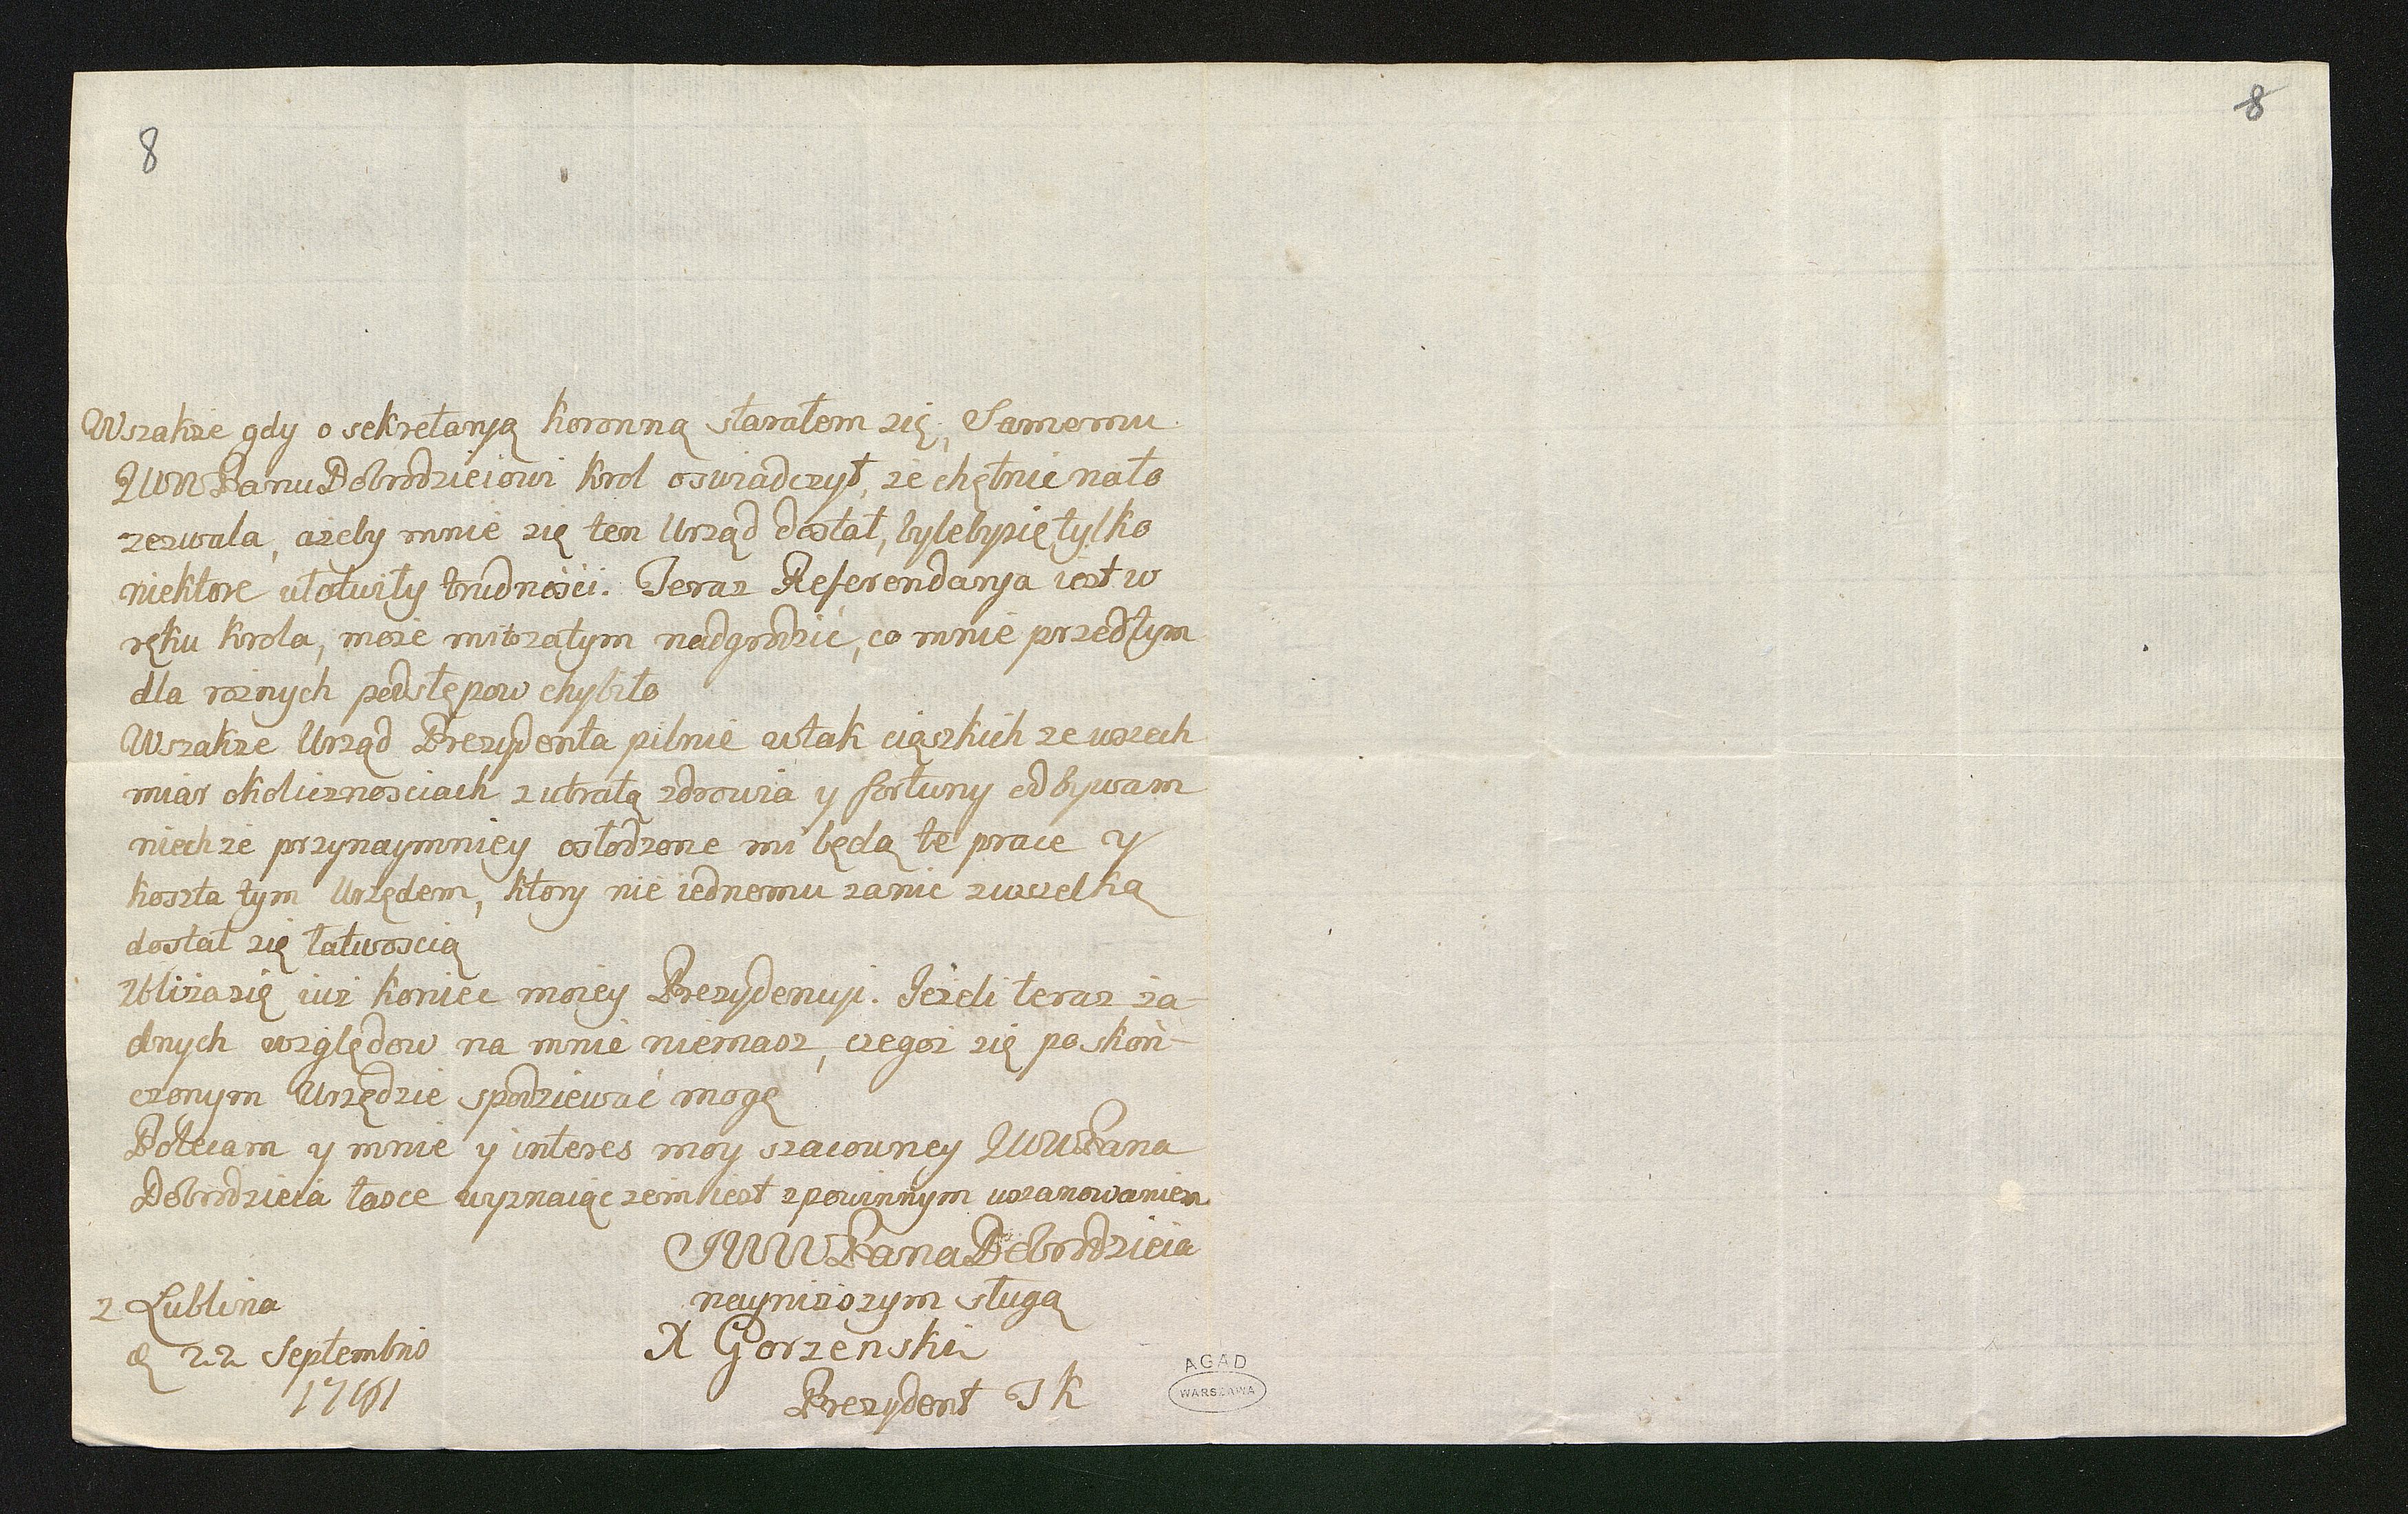 8
8
Wszakze gdy o sekretaryą koronną starałem się, Samemu
JWW Panu Dobrodzieiowi Krol oswiadczył, ze chętnie nato
zezwala, ażeby mnie się ten Urząd dostał, bylebysię tylko
niektore ułatwiły trudności. Teraz Referendarya iest w
ręku Krola, może mitozatym nadgrodzić, co mnie przedtym
dla rożnych podstępow chybiło
Wszakze Urząd Prezydenta pilnie wtak ciąszkich ze wszech
miar okolicznosciach z utratą zdrowia y fortuny odbywam
niechże przynaymniey osłodzone mi będą te prace y
koszta tym Urzędem, ktory nie iednemu zanic zwszelką
dostał się łatwoscią
Zbliżasię iuż koniec moiey Prezydencyi. Jeżeli teraz ża-
dnych względow na mnie niemasz, czegoz się po skoń-
czonym Urzędzie spodziewać mogę
Polecam y mnie y interes moy szacowney JWWPana
Dobrodzieia łasce wyznaiąc zem iest zpowinnym uszanowaniem
JWW Pana Dobrodzieia
nayniższym sługą
X Gorzenski
Prezydent T K
z Lublina
d 22 Septembris
1761
AGAD
WARSZAWA